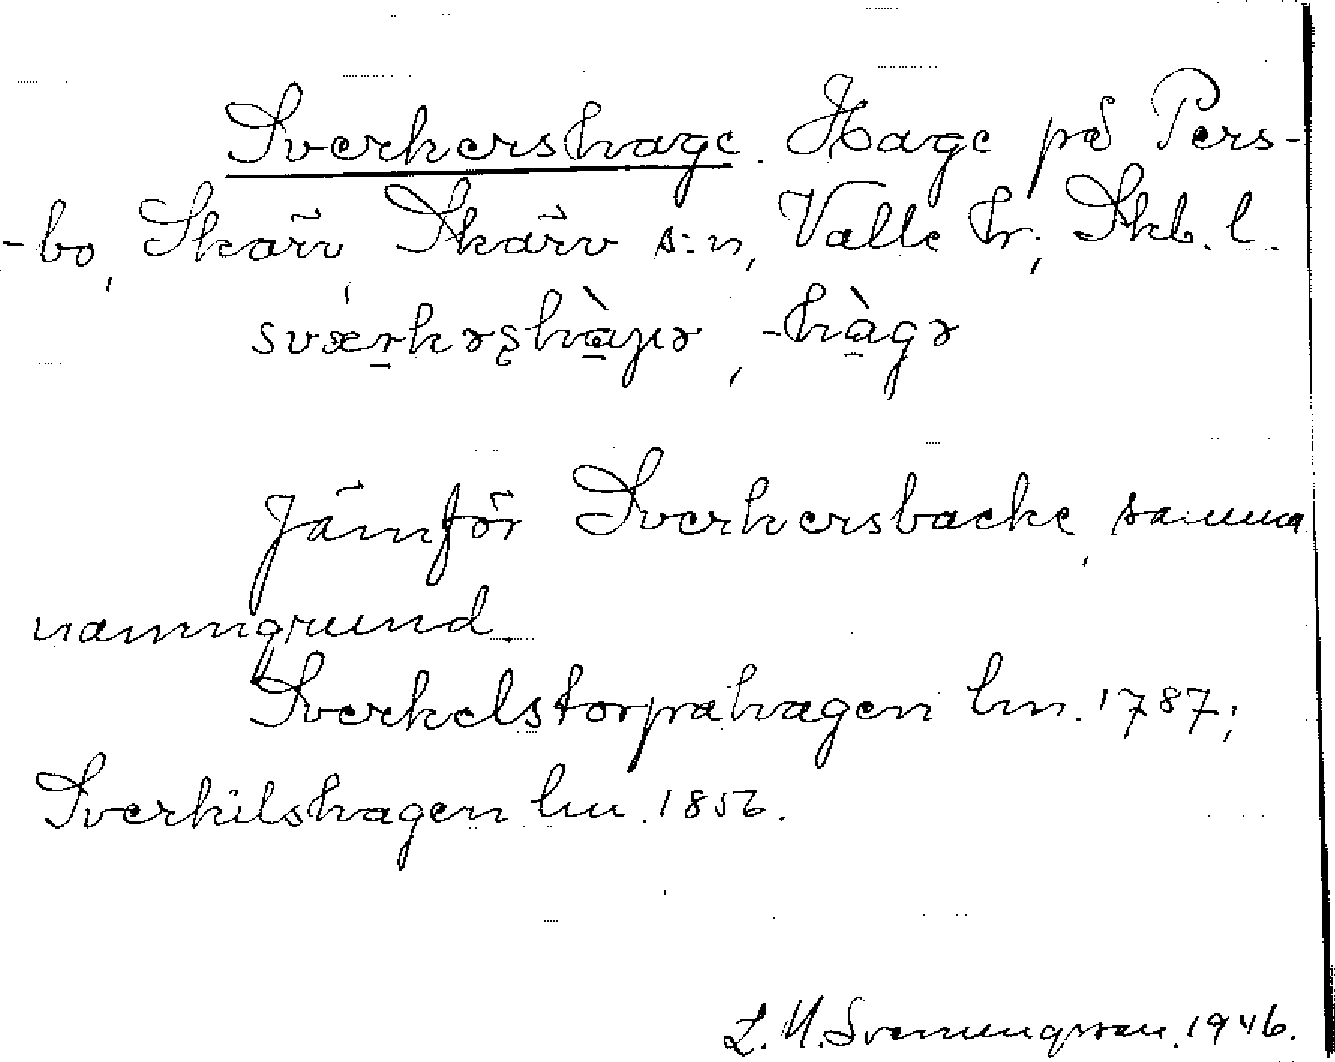 Sverkershage. Hage på Pers-
-bo, Skärv, Skärv s:n, Valle hr; Skb. l.
sværkərshàgə, -hàgə
Jämför Sverkersbacke, samma
namngrund.
Sverkelstorpahagen lm. 1787;
Sverkilshagen lm. 1856.
1946.